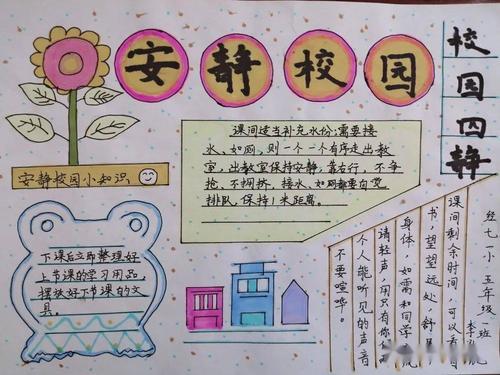 安静校园
校园四静
安静校园小知识
课间适当补充水份;需要接
水、如厕,则一个一个有序走出教
室,出教室保持安静,靠右行,不争
抢、不拥挤,接水、如厕都要自觉
排队,保持1米距离。
下课后立即整理好
上节课的学习用品,
摆放好下节课的文
具。
经七一小 五年级一班
课间剩余时间,可以看看
书,望望远处,舒展
身体,如需和同学
请轻声,用只有你们两
个人能听见的声音
不要喧哗。